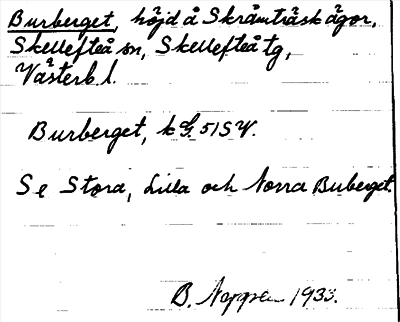 Burberget, höjd å Skråmträsk ägor,
Skellefteå sn, Skellefteå tg,
Västerb. l.
Burberget, k G. 51 SV.
Se Stora, Lilla och Norra Buberget.
B. 1933.